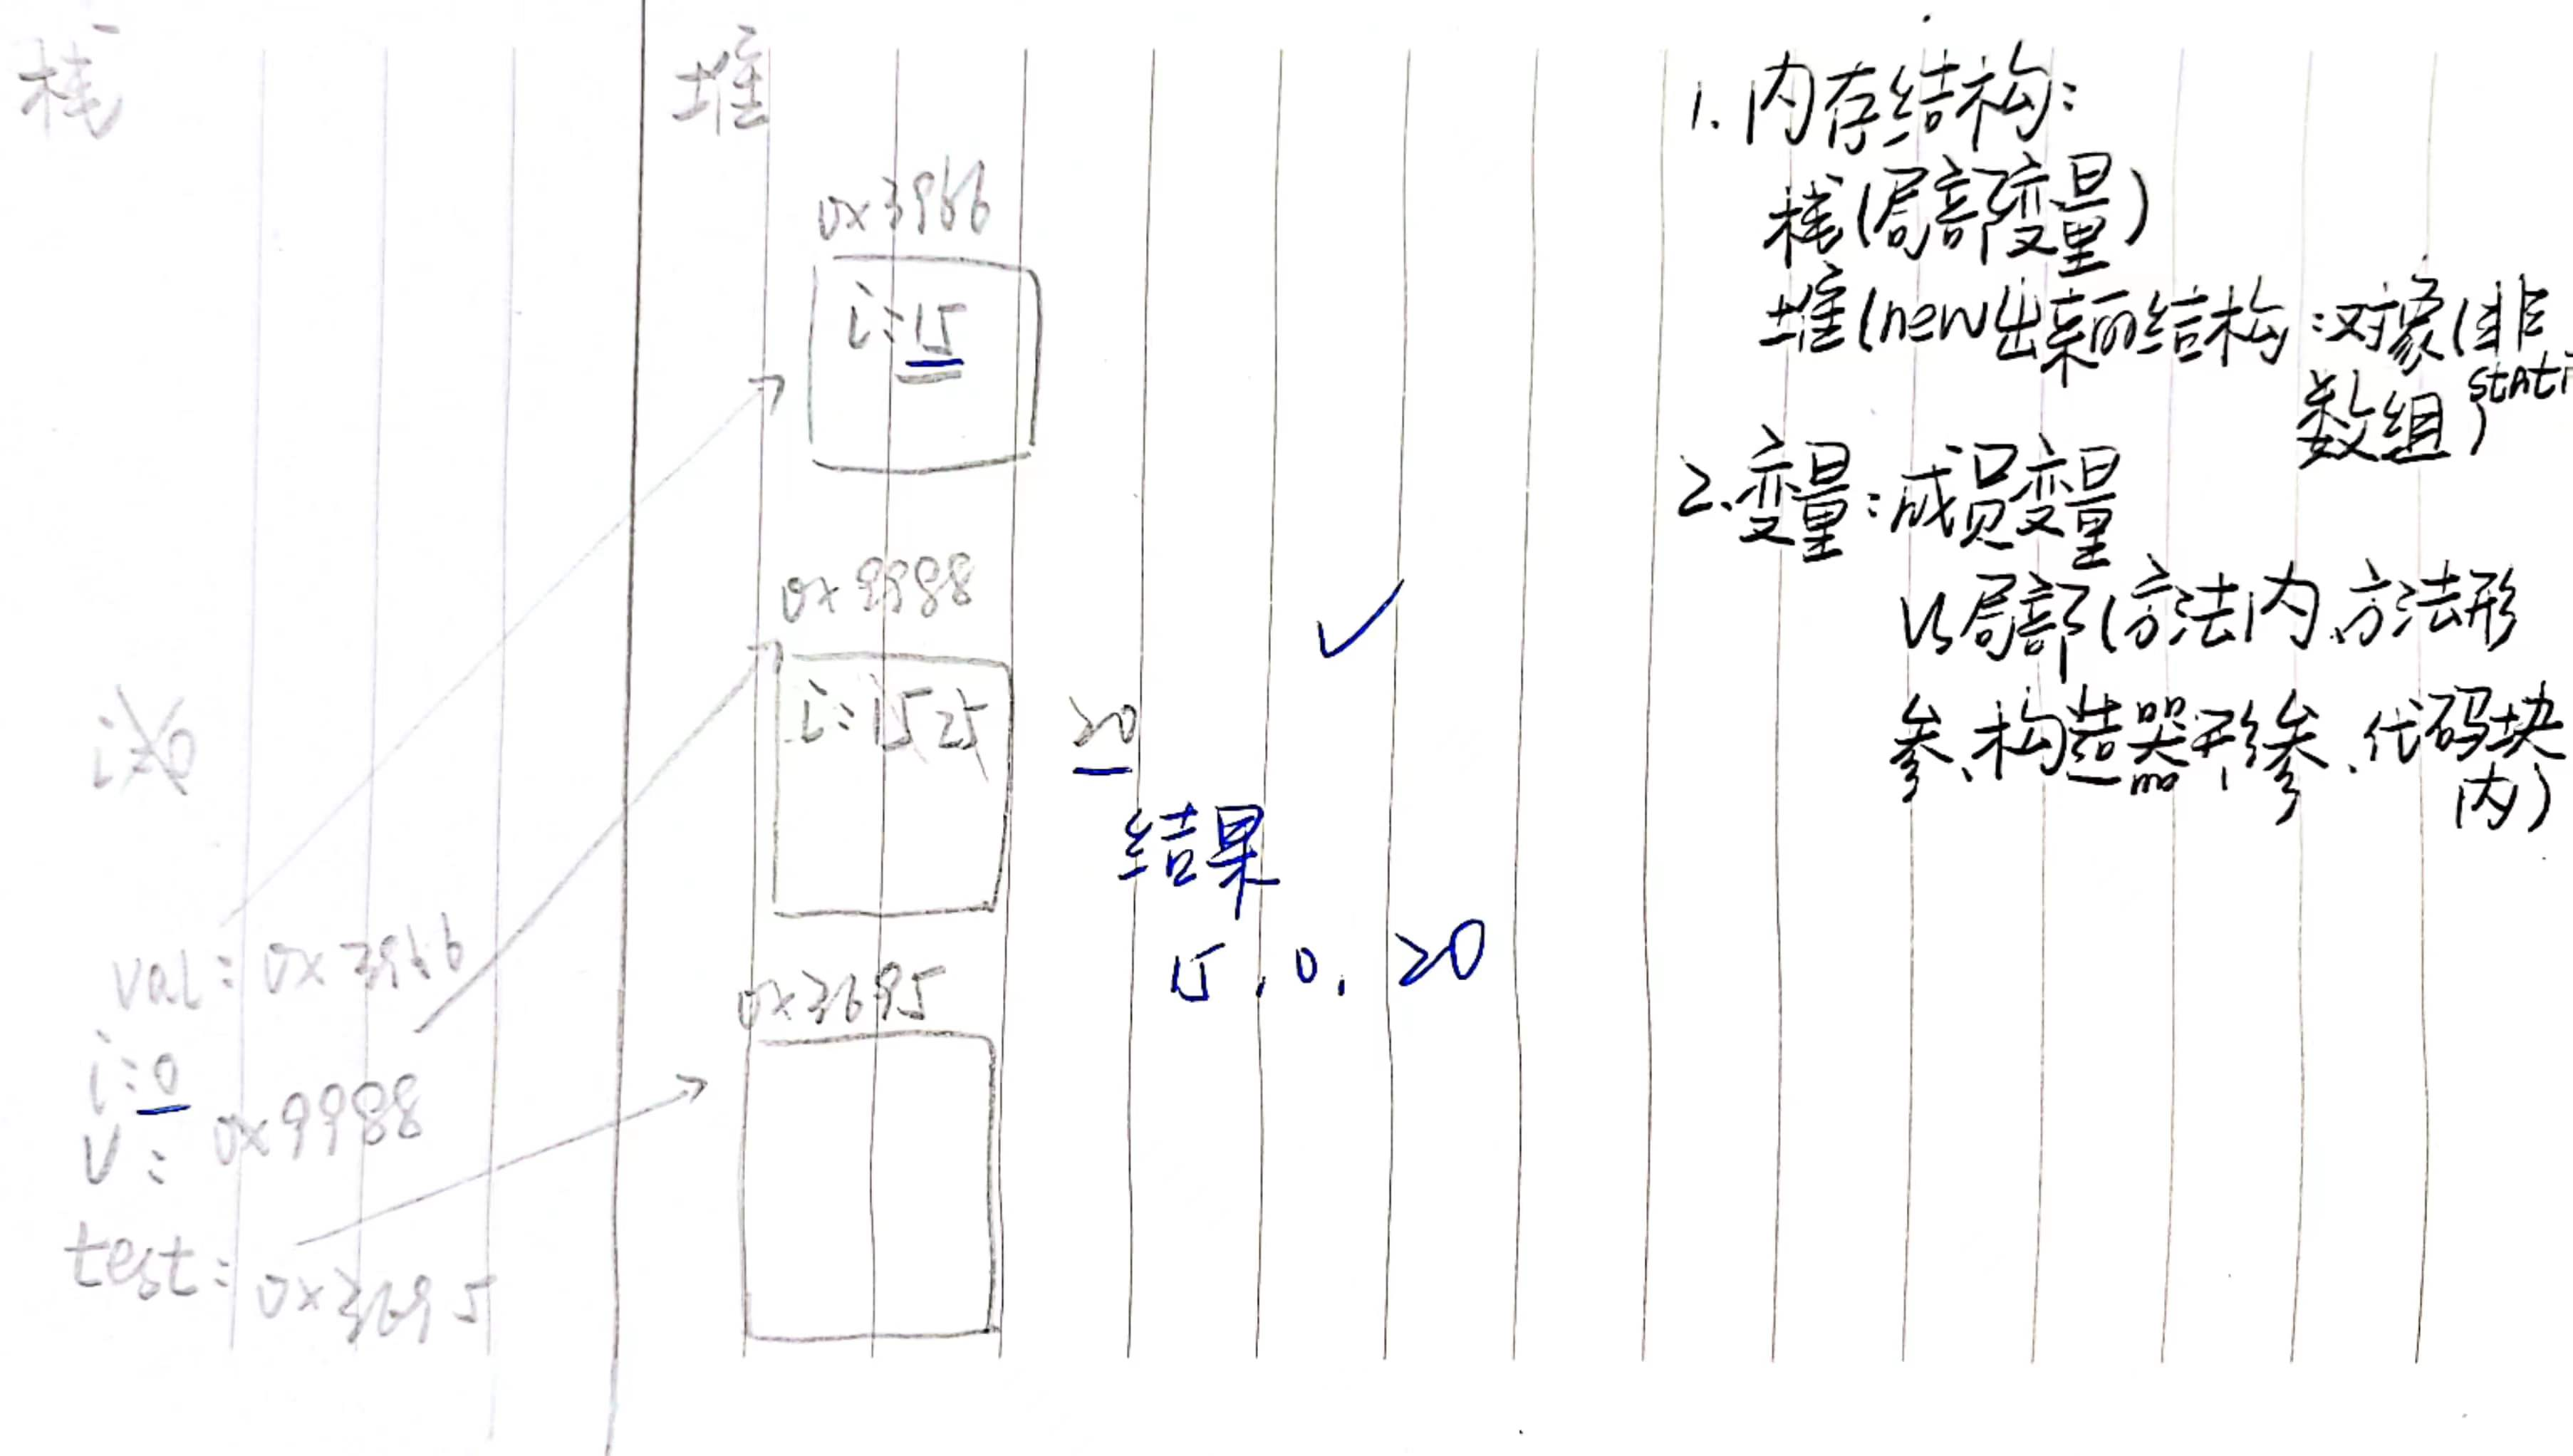 栈
堆
0x3966
i:15
0x9988
i:15 25 20
结果
15, 0, 20
0x3695
i:0
val: 0x3966
i:0
v: 0x9988
test: 0x3695
1. 内存结构:
栈(局部变量)
堆(new出来的结构:对象(非
stati
数组)
2. 变量:成员变量
vs局部(方法内、方法形
参、构造器形参、代码块
内)